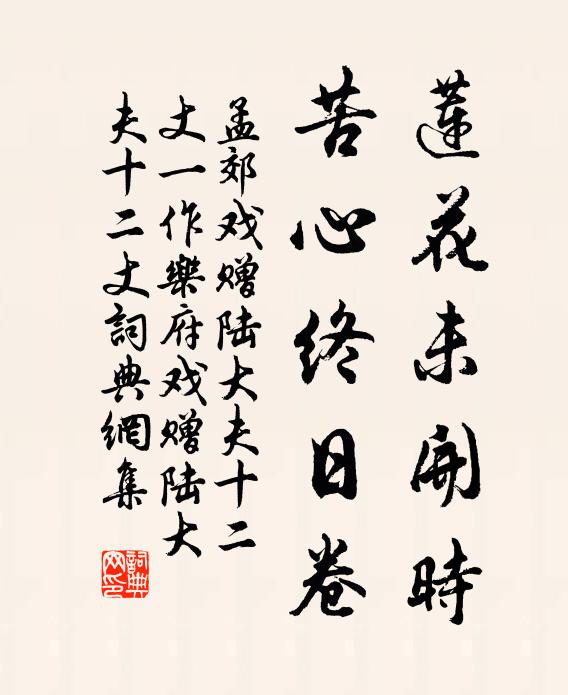 蓮花未開時
苦心終日卷
孟郊戏赠陆大夫十二
丈一作樂府戏赠陆大
夫十二丈詞典網集
詞典網印